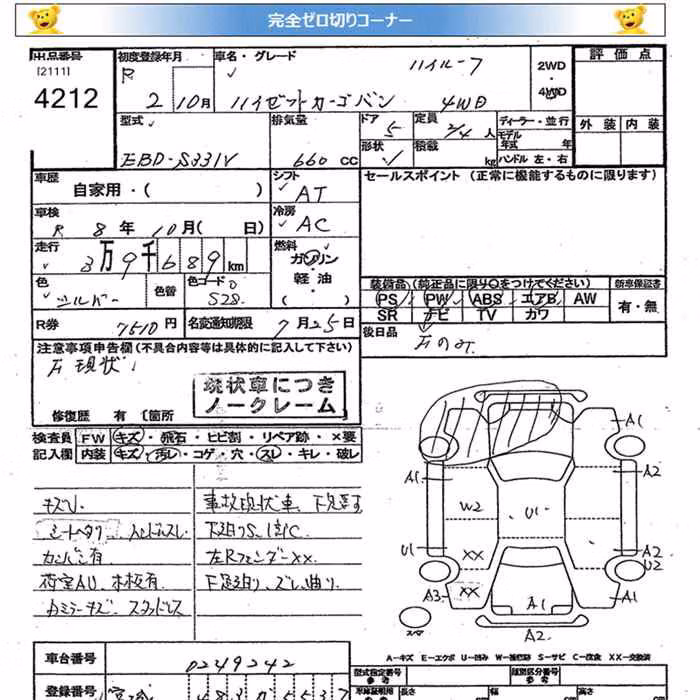 完全ゼロ切りコーナー
出品番号
[2111]
4212
初度登録年月
R 2 10月
車名・グレード
ハイルーフ
ハイゼットカーゴバン 4WD
2WD
・
4WD
評価点
外装 内装
型式
EBD-S331V
排気量
660 cc
ドア 5
形状
定員 2/4 人
積載 kg
ディーラー・並行
モデル年式 年
ハンドル 左・右
車歴
自家用・( )
シフト
AT
セールスポイント (正常に機能するものに限ります)
車検
R 8年 10月( 日)
冷房
AC
走行
3万9千689km
燃料
ガソリン
・
軽油
・
( )
色
シルバー
色替
色コード
S28
装備品 (純正品に限り○をつけてください)
PS PW ABS エアB AW
SR ナビ TV カワ
新車保証書
有・無
R券 7510円
名変通知期限 7月25日
後日品
注意事項申告欄(不具合内容等は具体的に記入して下さい)
現状
現状車につき
ノークレーム
修復歴 有 [箇所
検査員
記入欄
FW キズ・飛石・ヒビ割・リペア跡・×要
内装 キズ・汚レ・コゲ・穴・スレ・キレ・破レ
キズU
事故現状車 下見要す
シートヘタリ ハンドルスレ
下廻りS、C
カンバン有
左RフェンダーXX
荷室AU、木板有
下足廻り、ズレ曲り
カミラーキズ スタッドレス
A1
A2
A1
W2
U1
U1
XX
A2
U2
A3
XX
A1
A1
A2
スペア
A-キズ E-エクボ U-凹み W-補修跡 S-サビ C-腐食 XX-交換済
車台番号
0249242
登録番号
型式指定番号
類別区分番号
長さ 幅 高さ